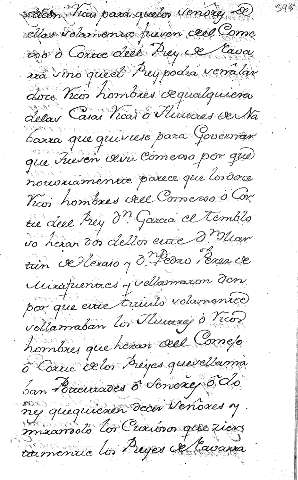 casas Ricas para que los señores de
ellas solamente fuesen del Conse
xo ò Corte del Rey de Nava
rra sino que el Rey podia señalar
doce Ricos hombres de qualquiera
de las Casas Ricas ò Ilustres de Na
barra que quisiese para Governar
que fuesen de su Consexo por que
notoriamente parece que los doce
Ricos hombres del Consexo ò Cor
te del Rey Dn Garcia el temblo
so heran dos dellos este Dn Mar
tin de Leraso y Dn Pedro Perez de
y se llamaron Don
por que este titulo solamente
se llamaban los Ilustres ò Ricos
hombres que heran del Consejo
ò Corte de los Reyes que se llama
ban Potestades ò Señores ò Do
nes que quieren decir Señores y
mirandolo los Curiosos que cier
tamente los Reyes de Navarra